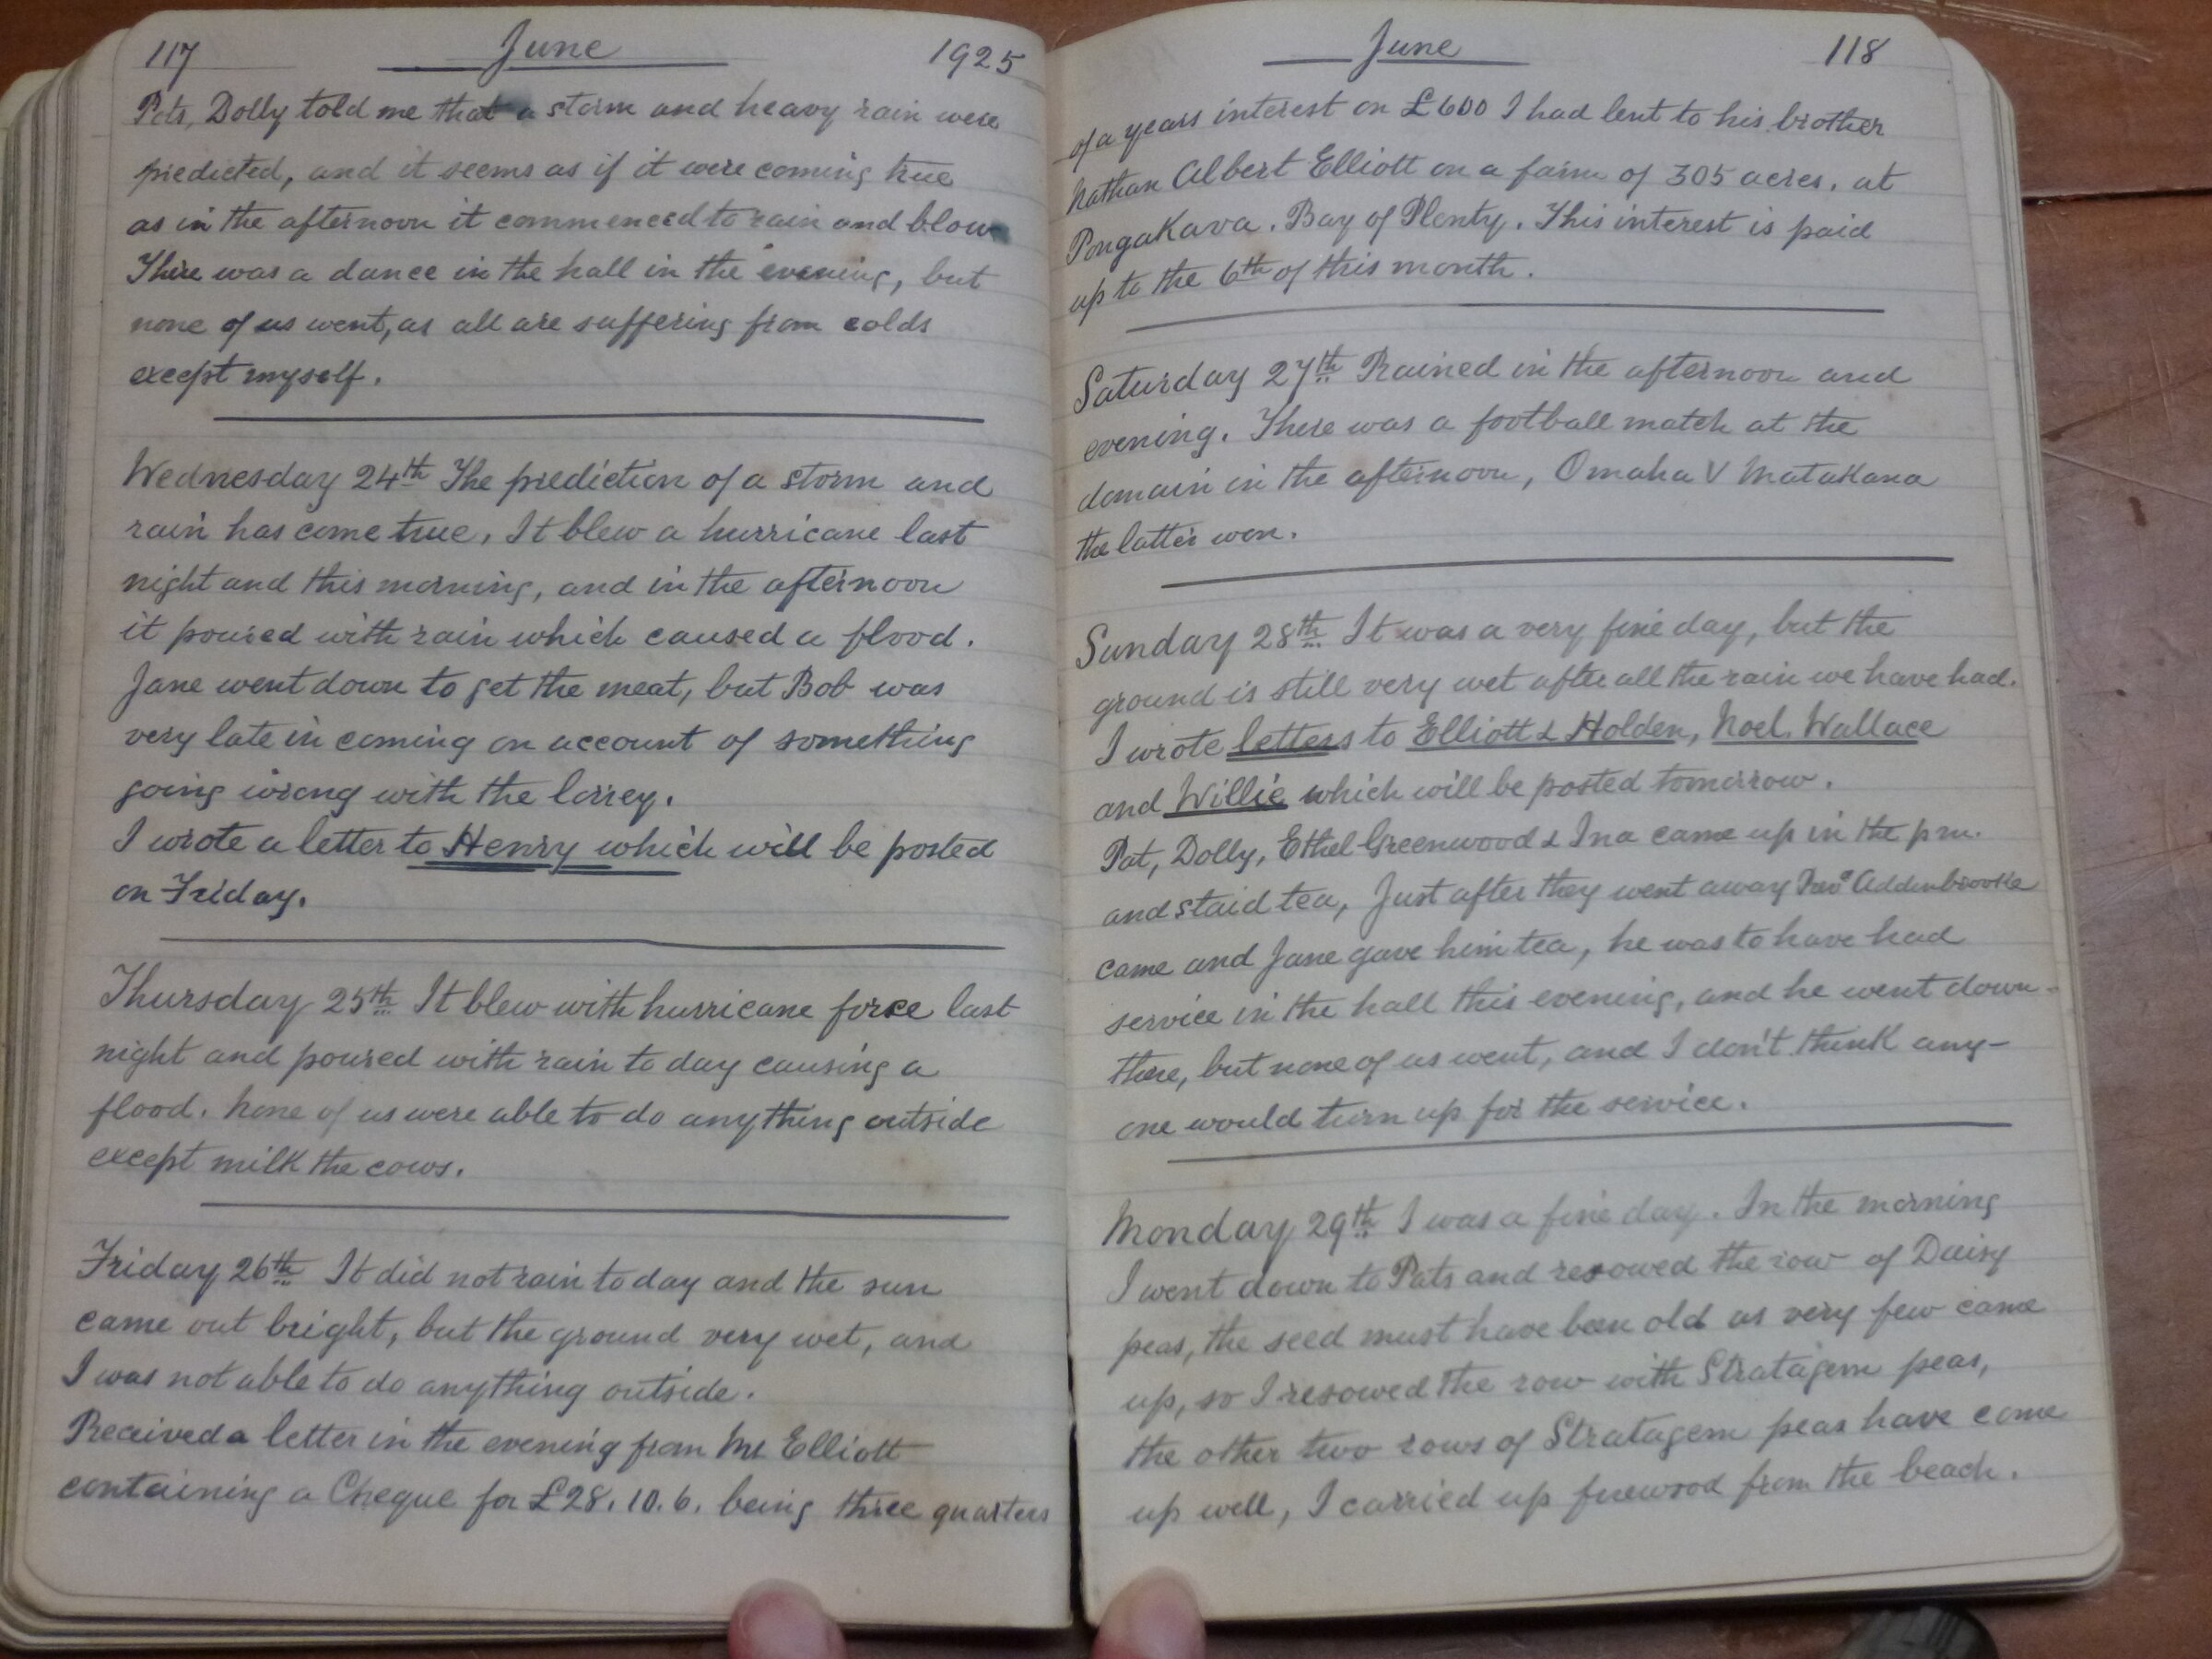 117 June 1925
Pats, Dolly told me that a storm and heavy rain were
predicted, and it seems as if it were coming true
as in the afternoon it commenced to rain and blow
There was a dance in the hall in the evening, but
none of us went, as all are suffering from colds
except myself.
Wednesday 24th The prediction of a storm and
rain has come true. It blew a hurricane last
night and this morning, and in the afternoon
it poured with rain which caused a flood.
Jane went down to get the meat, but Bob was
very late in coming on account of something
going wrong with the lorrey.
I wrote a letter to Henry which will be posted
on Friday.
Thursday 25th It blew with hurricane force last
night and poured with rain to day causing a
flood. None of us were able to do anything outside
except milk the cows.
Friday 26th It did not rain to day and the sun
came out bright, but the ground very wet, and
I was not able to do anything outside.
Received a letter in the evening from Mr Elliott
containing a Cheque for £28.10.6. being three quarters
June 118
of a years interest on £600 I had lent to his brother
Nathan Albert Elliott on a farm of 305 acres, at
PongaKava. Bay of Plenty. This interest is paid
up to the 6th of this month.
Saturday 27th Rained in the afternoon and
evening. There was a football match at the
domain in the afternoon, Omaha V MataKana
the latter won.
Sunday 28th It was a very fine day, but the
ground is still very wet after all the rain we have had.
I wrote letters to Elliott & Holden, Noel Wallace
and Willie which will be posted tomorrow.
Pat, Dolly, Ethel Greenwood & Ina came up in the pm.
and staid tea, Just after they went away Addenbrooke
came and Jane gave him tea, he was to have had
service in the hall this evening, and he went down-
there, but none of us went, and I don't think any-
one would turn up for the service.
Monday 29th I was a fine day. In the morning
I went down to Pats and resowed the row of Daisy
peas, the seed must have been old as very few came
up, so I resowed the row with Stratagem peas,
the other two rows of Stratagem peas have come
up well, I carried up firewood from the beach.